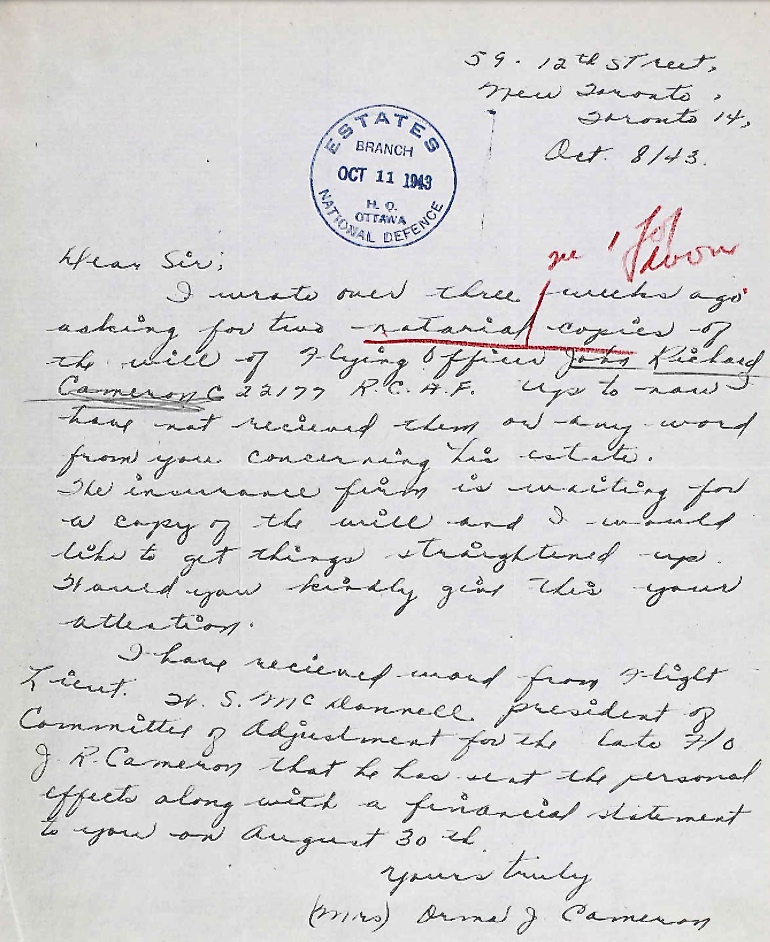 59 - 12th Street,
New Toronto,
Toronto 14,
Oct. 8/43.
ESTATES
BRANCH
OCT 11 1943
H. Q.
OTTAWA
NATIONAL DEFENCE
Dear Sir;
I wrote over three weeks ago
asking for two notarial copies of
the will of Flying Officer John Richard
Cameron C 22177 R.C.A.F. Up to now I
have not recieved them or any word
from you concerning his estate.
The insurance firm is waiting for
a copy of the will and I would
like to get things straightened up.
Would you kindly give this your
attention.
I have recieved word from Flight
Lieut. H. S. McDonnell president of
Committee of Adjustment for the late F/O
J. R. Cameron that he has sent the personal
effects along with a financial statement
to you on August 30 th.
Yours truly
(Mrs) Orma J. Cameron